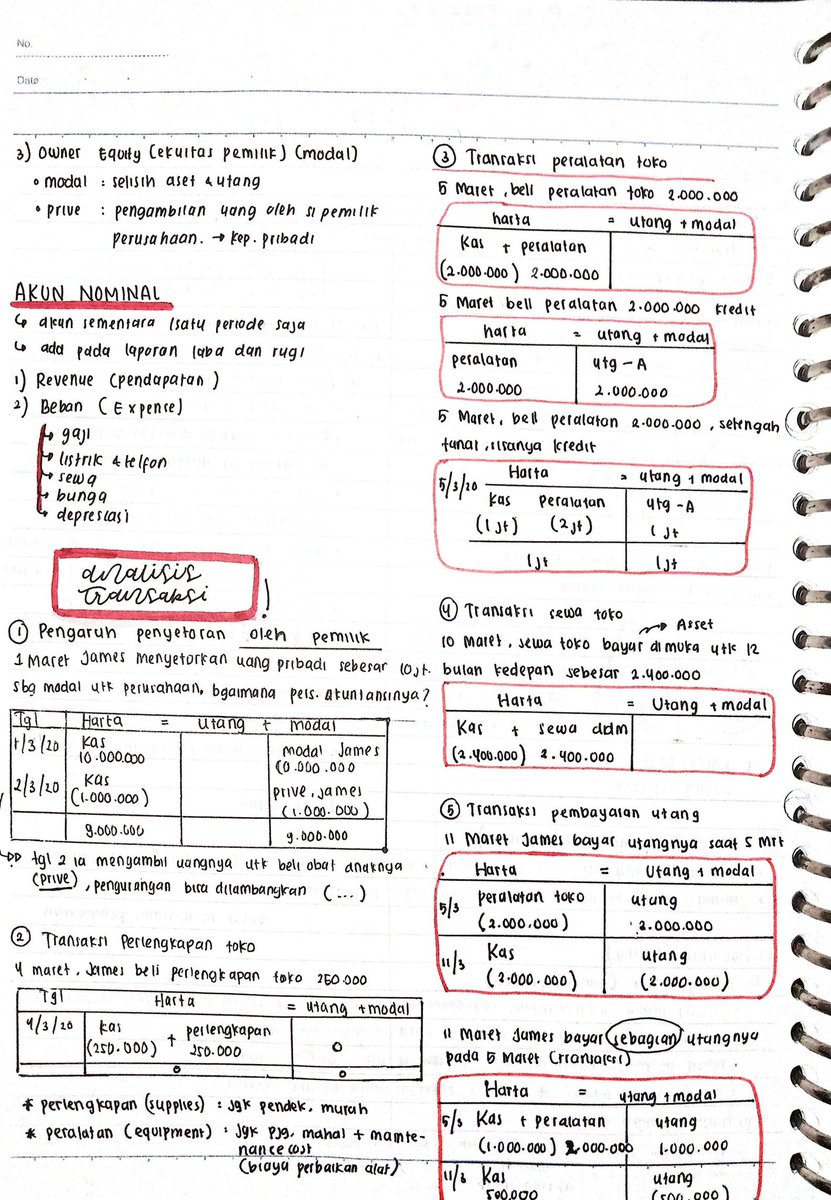 No.
Date
3) Owner Equity (ekuitas pemilik) (modal)
• modal : selisih aset & utang
• prive : pengambilan uang oleh si pemilik
perusahaan. → kep. pribadi
AKUN NOMINAL
↳ akun sementara / satu periode saja
↳ ada pada laporan laba dan rugi
1) Revenue (pendapatan)
2) Beban (Expence)
↳ gaji
↳ listrik & telfon
↳ sewa
↳ bunga
↳ depresiasi
analisis
transaksi !
① Pengaruh penyetoran oleh pemilik
1 Maret James menyetorkan uang pribadi sebesar 10jt.
sbg modal utk perusahaan, bgaimana pers. akuntansinya?
Tgl Harta = utang + modal
1/3/20 Kas modal James
10.000.000 10.000.000
2/3/20 Kas prive, james
(1.000.000) (1.000.000)
9.000.000 9.000.000
tgl 2 ia mengambil uangnya utk beli obat anaknya
(prive), pengurangan bisa dilambangkan (...)
② Transaksi Perlengkapan toko
4 maret, James beli perlengkapan toko 250.000
Tgl Harta = utang + modal
4/3/20 kas + perlengkapan
(250.000) 250.000 0
0 0
* perlengkapan (supplies) : jgk pendek, murah
* peralatan (equipment) : jgk pjg, mahal + mainte-
nance cost
(biaya perbaikan alat)
③ Transaksi peralatan toko
5 Maret, beli peralatan toko 2.000.000
harta = utang + modal
Kas + peralatan
(2.000.000) 2.000.000
5 Maret beli peralatan 2.000.000 kredit
harta = utang + modal
peralatan utg - A
2.000.000 2.000.000
5 Maret, beli peralatan 2.000.000, setengah
tunai, sisanya kredit
5/3/20 Harta = utang + modal
Kas peralatan utg - A
(1jt) (2jt) 1jt
1jt 1jt
④ Transaksi sewa toko
→ Asset
10 Maret, sewa toko bayar di muka utk 12
bulan kedepan sebesar 2.400.000
Harta = Utang + modal
Kas + sewa ddm
(2.400.000) 2.400.000
⑤ Transaksi pembayaran utang
11 Maret James bayar utangnya saat 5 Mrt
Harta = Utang + modal
5/3 peralatan toko utang
(2.000.000) 2.000.000
11/3 Kas utang
(2.000.000) (2.000.000)
11 Maret James bayar sebagian utangnya
pada 5 Maret (transaksi)
Harta = utang + modal
5/3 Kas + peralatan utang
(1.000.000) 2.000.000 1.000.000
11/3 Kas utang
500.000 (500.000)